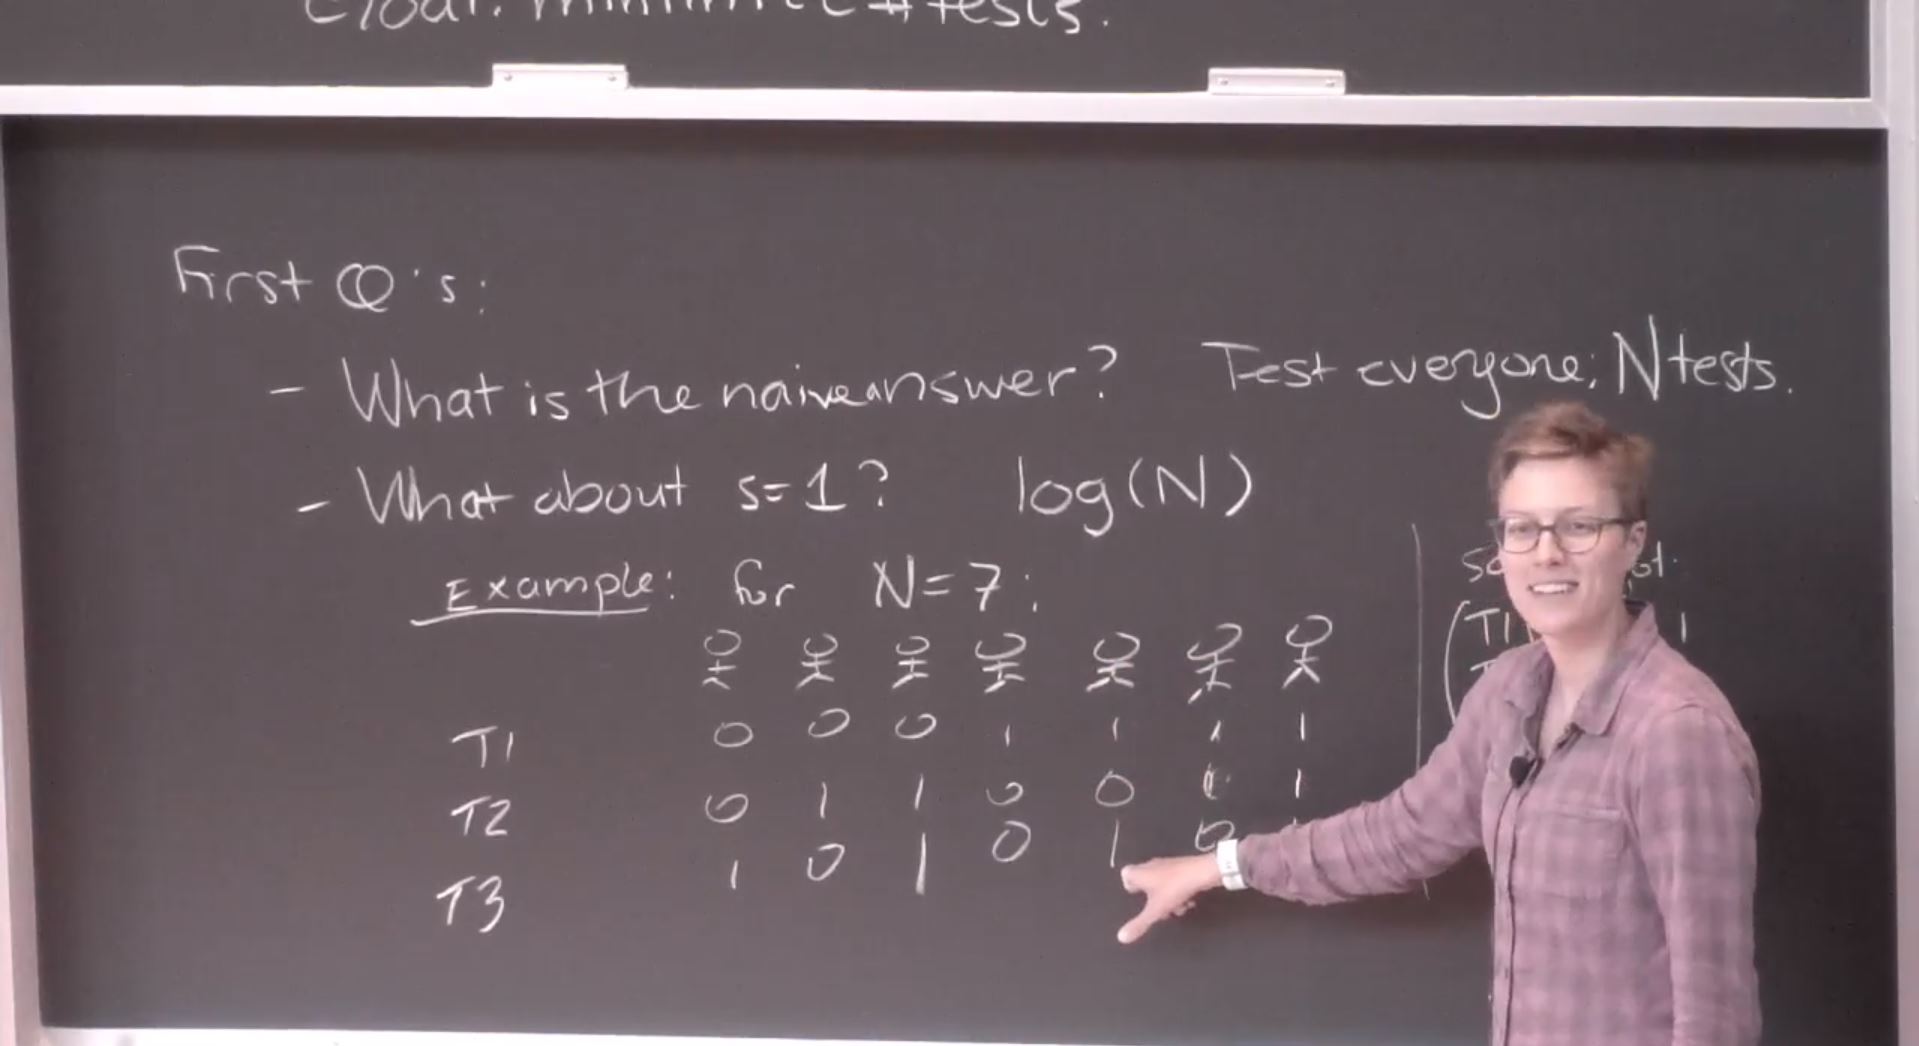 Goal: minimize # tests.
First Q's:
- What is the naive answer? Test everyone; N tests.
- What about s=1? log(N)
Example: for N=7:
T1 0 0 0 1 1 1 1
T2 0 1 1 0 0 1 1
T3 1 0 1 0 1 0
(T1 1